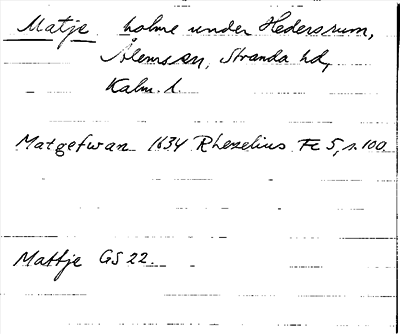 Matje, holme under Hedersrum,
Ålemssn, Stranda hd,
Kalm. l.
Matgefwan 1634 Rhezelius Fc 5, s. 100
Mattje GS 22.